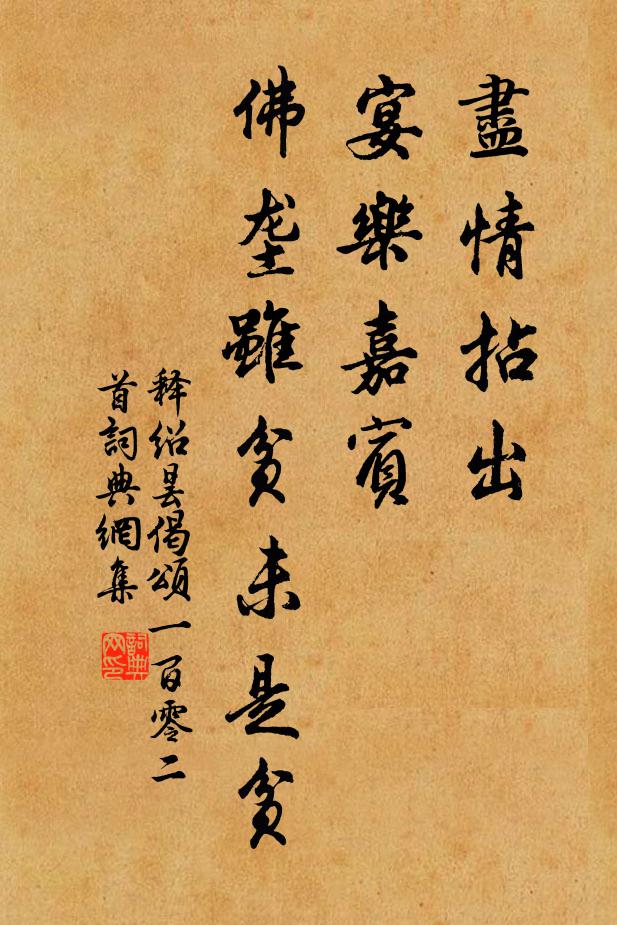 盡情拈出
宴樂嘉賓
佛垄雖貧未是貧
释绍昙偈頌一百零二
首詞典網集
詞典
网印